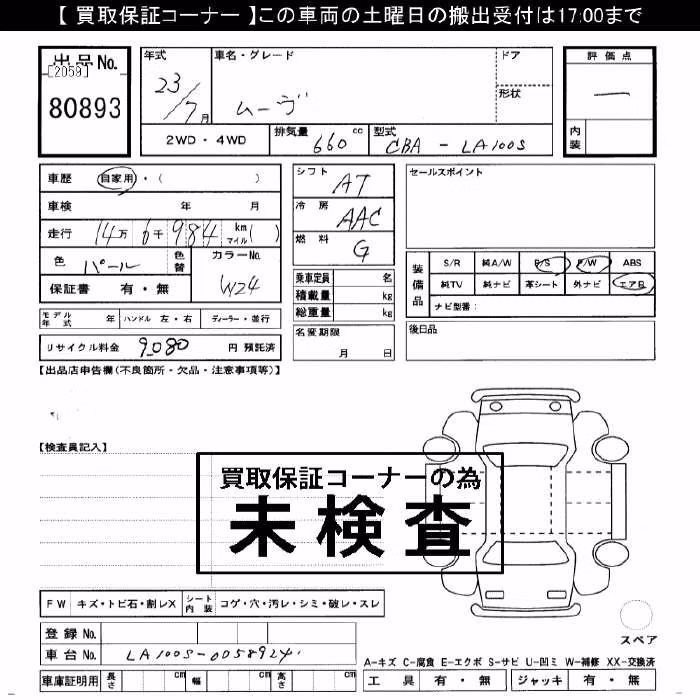 【 買取保証コーナー 】この車両の土曜日の搬出受付は17:00まで
出品No.
[2059]
80893
年式
23/7月
車名・グレード
ムーヴ
ドア
形状
2WD・4WD
排気量
660 cc
型式
CBA - LA100S
評価点
―
内装
車歴
自家用・( )
車検 年 月
走行 14万6千984 km マイル( )
色 パール
色替
カラーNo.
W24
保証書 有・無
シフト AT
冷房 AAC
燃料 G
乗車定員 名
積載量 kg
総重量 kg
名変期限
月 日
セールスポイント
装備品
S/R 純A/W P/S P/W ABS
純TV 純ナビ 革シート 外ナビ エアB
ナビ型番：
後日品
モデル年式 年 ハンドル 左・右 ディーラー・並行
リサイクル料金 9,080 円 預託済
【出品店申告欄(不良箇所・欠品・注意事項等)】
【検査員記入】
買取保証コーナーの為
未検査
FW キズ・トビ石・割レX
シート内装 コゲ・穴・汚レ・シミ・破レ・スレ
登録 No.
車台 No. LA100S-0058924
車庫証明用 長さ cm 幅 cm 高さ cm
スペア
A-キズ C-腐食 E-エクボ S-サビ U-凹ミ W-補修 XX-交換済
工具 有・無 ジャッキ 有・無